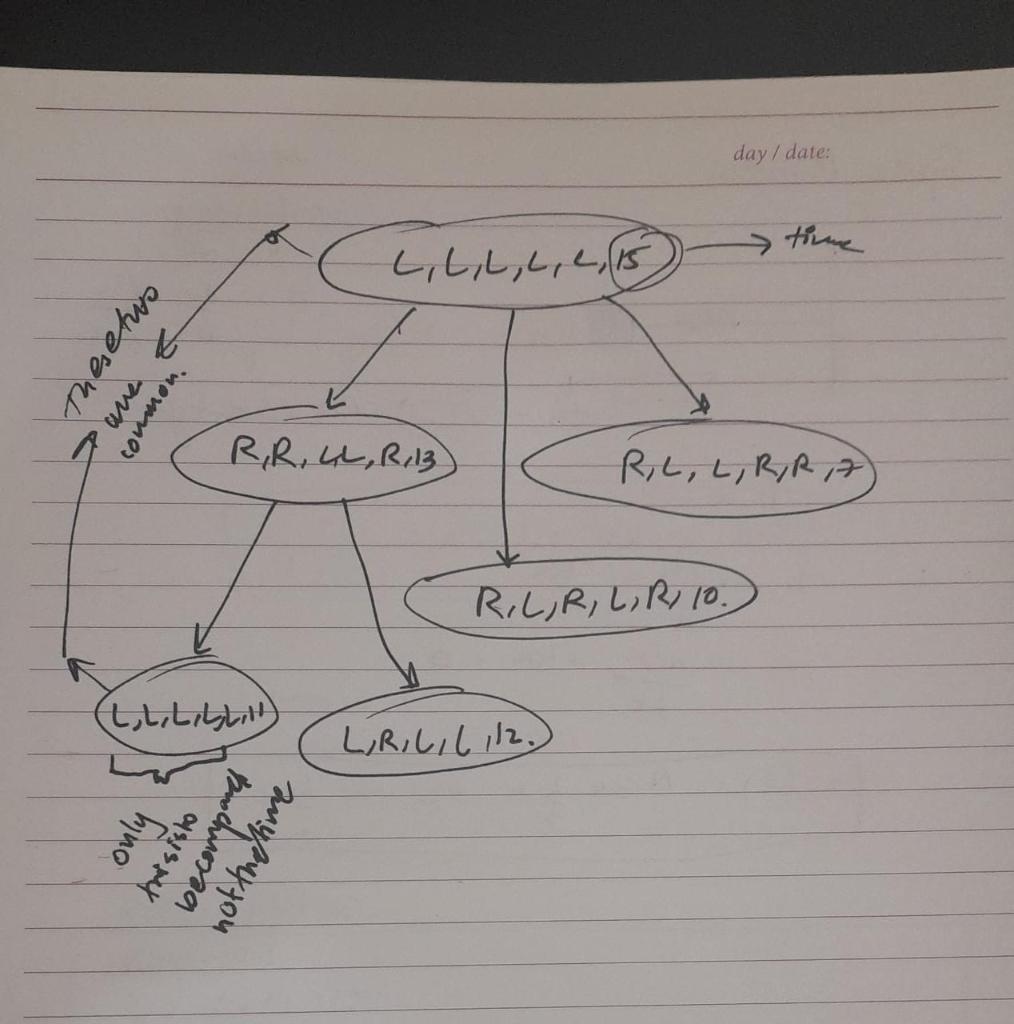 day / date:
L, L, L, L, L, 15
time
These two
are
common.
R, R, L, L, R, 13
R, L, L, R, R, 7
R, L, R, L, R, 10.
L, L, L, L, L, 11
L, R, L, L, 12.
only
this is to
be compared
not the time